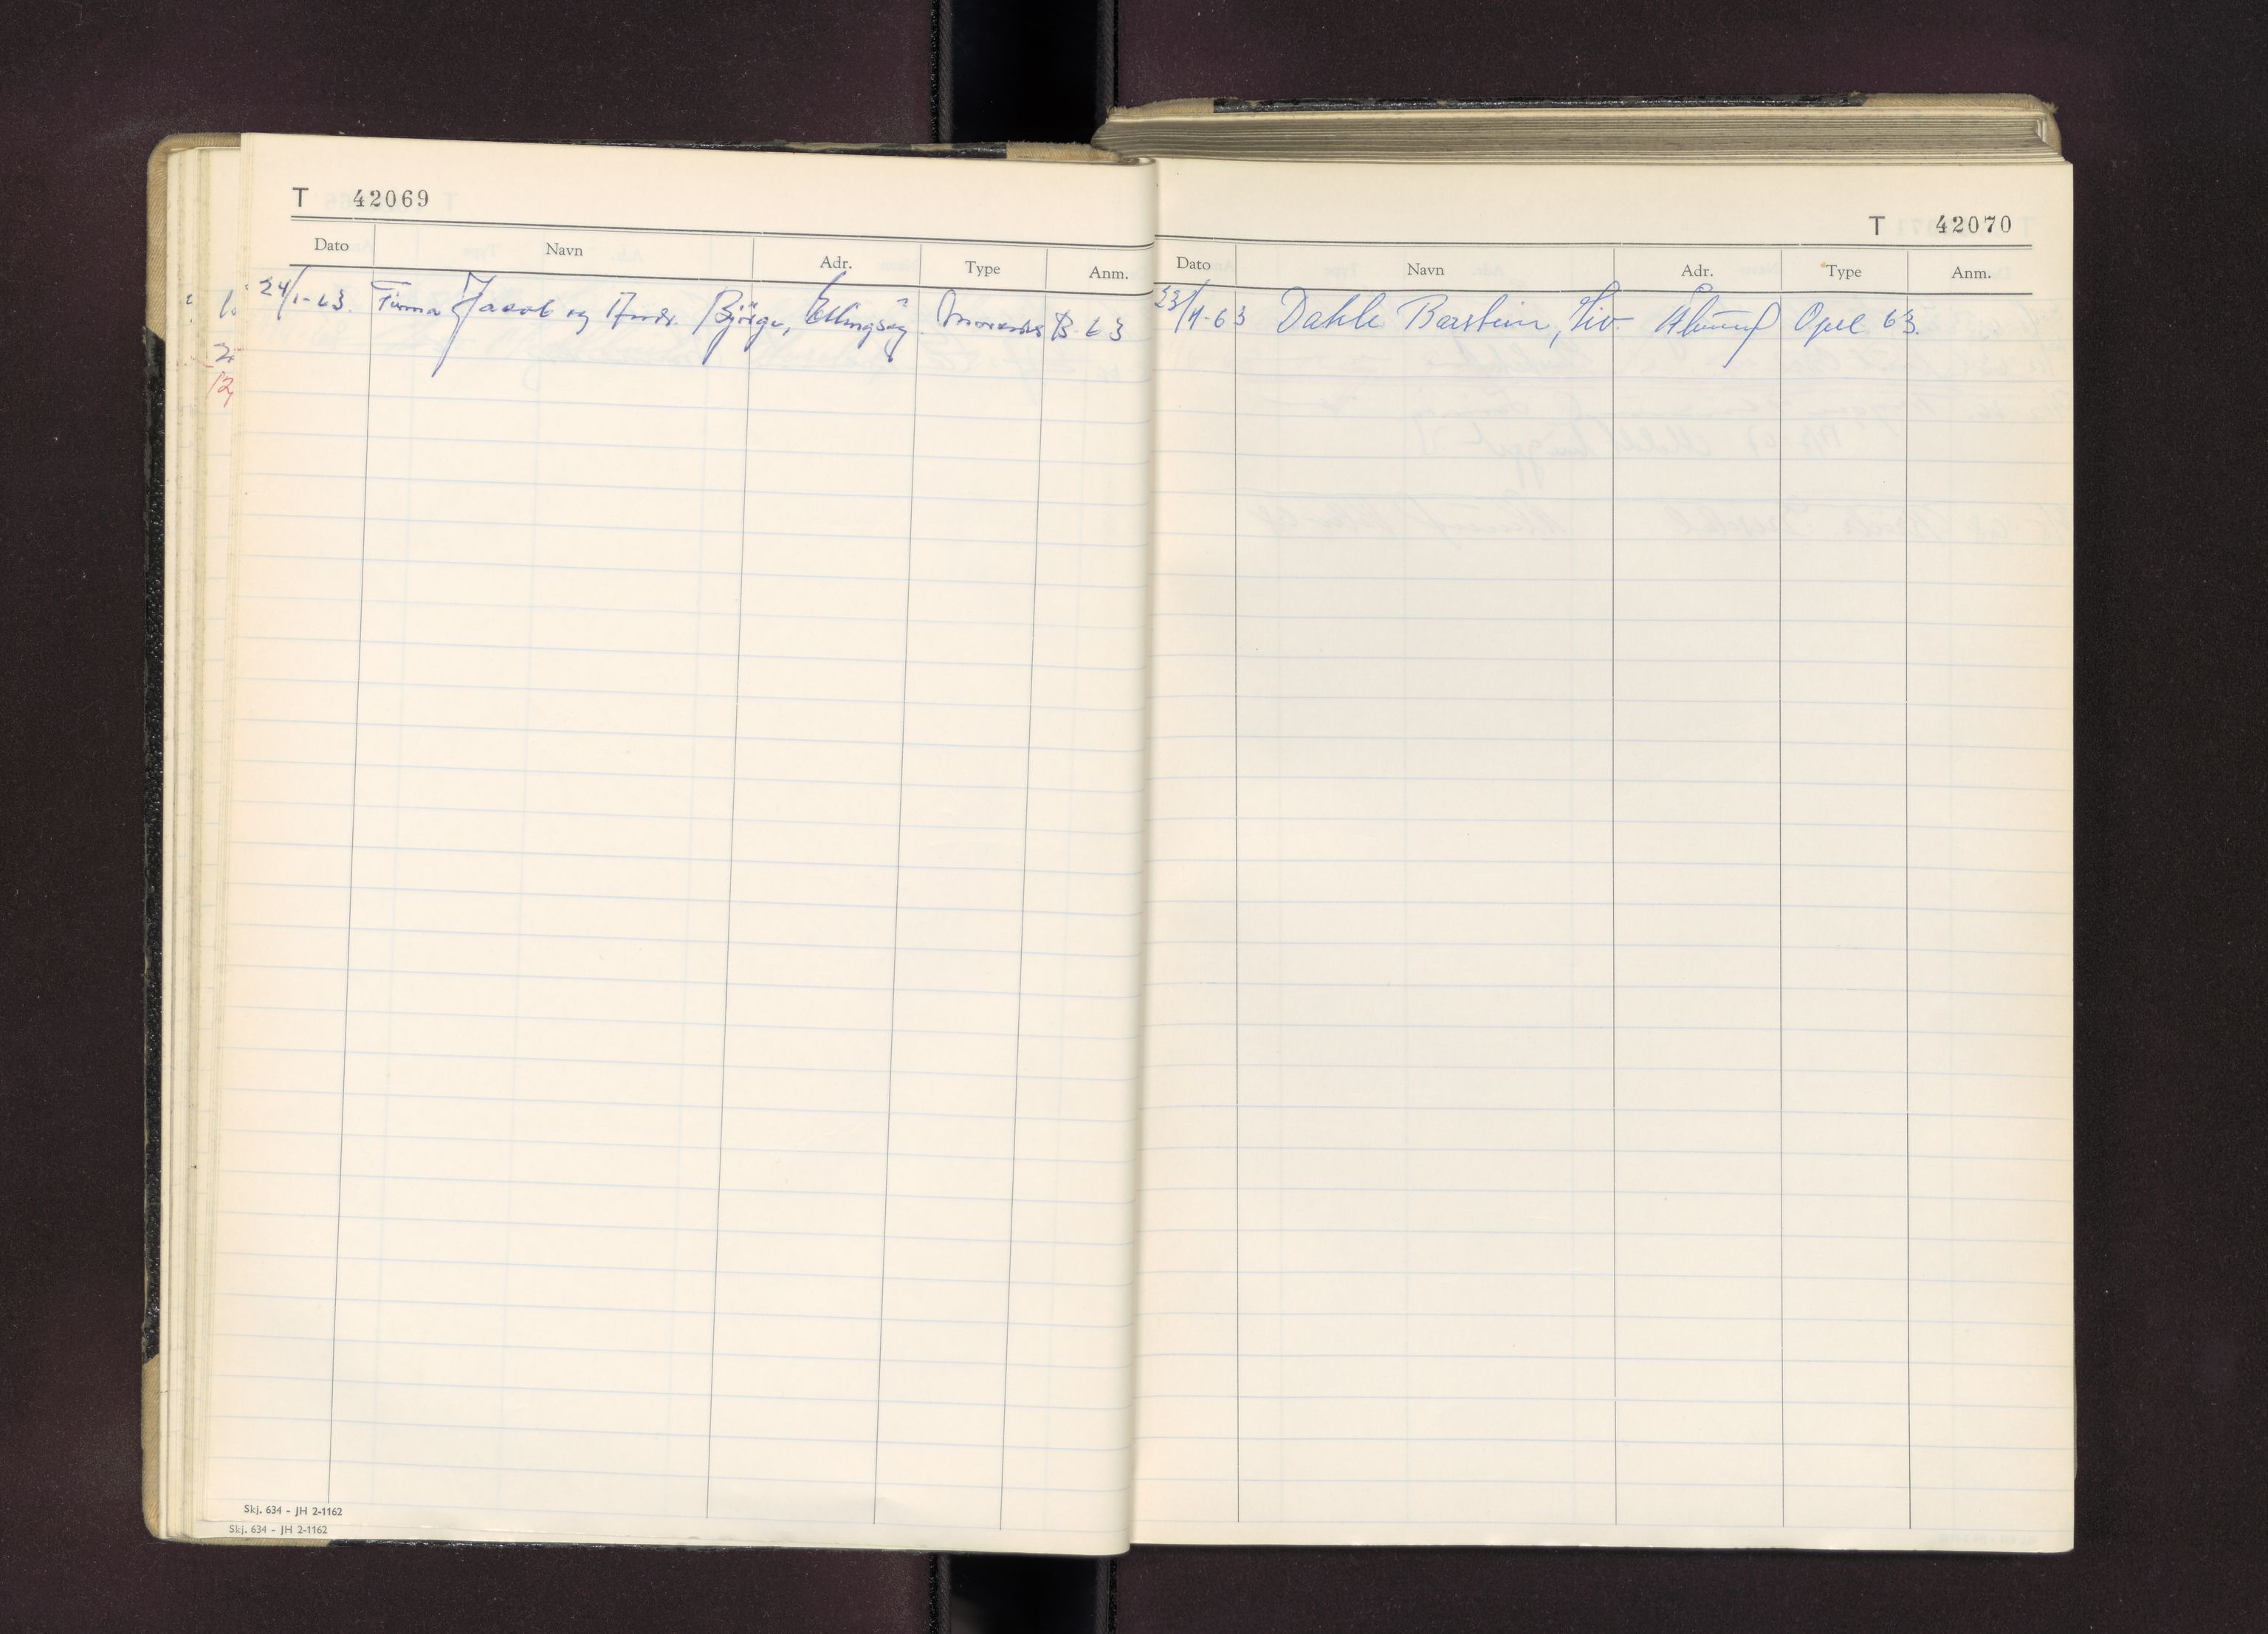 T 42069
Dato Navn Adr. Type Anm.
24/1-63. Firma Jacob og Andr. Bjørge, Ellingsøy Mercedes B-63
Skj. 634 - JH 2-1162
Skj. 634 - JH 2-1162
T 42070
Dato Navn Adr. Type Anm.
23/4-63 Dahle Barstein, Liv Ålesund Opel 63.